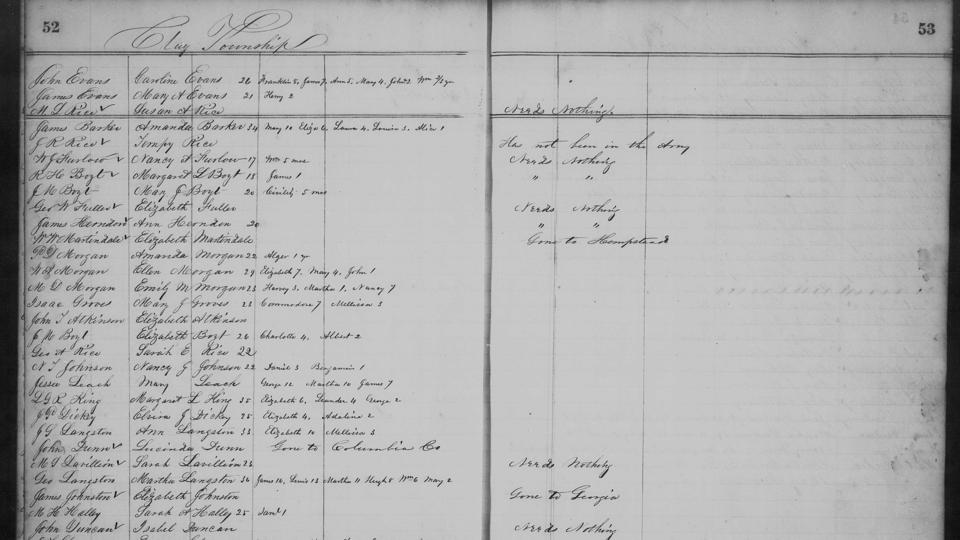 52
53
Clay Township
John Evans Caroline Evans 26 Franklin 8, James 7, Ann 5, Mary 4, John 2, Wm 7/12 yr
James Evans Mary A Evans 21 Henry 2
M L Rice ✓ Susan A Rice Needs Nothing.
James Barker Amanda Barker 34 May 10 Eliza 6, Laura 4, Louisa 3, Alice 1
J R Rice ✓ Timpy Rice Has not been in the Army
W J Furlow ✓ Nancy A Furlow 17 Wm 5 mos Needs Nothing
R H Bozt ✓ Margaret L Bozt 18 James 1 " "
J M Bozt Mary J Bozt 20 5 mos
Geo W Fuller ✓ Elizabeth Fuller Needs Nothing
James Herndon ✓ Ann Herndon 20 " "
W W Martindale ✓ Elizabeth Martindale Gone to Hempstead
Morgan Amanda Morgan 22 Alger 1 yr
W A Morgan Ellen Morgan 29 Elizabeth 7, Mary 4, John 1
M D Morgan Emily M Morgan 23 Henry 3, Martha 1, Nancy 7
Isaac Groves Mary J Groves 23 Commodore 7 Mellissa 3
John T Atkinson Elizabeth Atkinson
J M Bozt Elizabeth Bozt 26 Charlotte 4, Albert 2
Geo A Rice Sarah E Rice 22
N T Johnson Nancy J Johnson 22 Daniel 3 Benjamin 1
Jessee Leach Mary Leach George 12 Martha 10 James 7
L G R King Margaret L King 35 Elizabeth 6, Leander 4 George 2
Dickey Elvira J Dickey 25 Elizabeth 4, Adelia 2
J G Langston Ann Langston 33 Elizabeth 10 Mellissa 3
John Dunn ✓ Lucinda Dunn Gone to Columbia Co
M T Lavillion ✓ Sarah Lavillion 23 Needs Nothing
Geo Langston Martha Langston 36 James 14, Louis 13 Martha 11 Hugh 8 Wm 6 Mary 2
James Johnston ✓ Elizabeth Johnston Gone to Georgia
M H Halley Sarah A Halley 25 Saml 1
John Duncan ✓ Isabel Duncan Needs Nothing